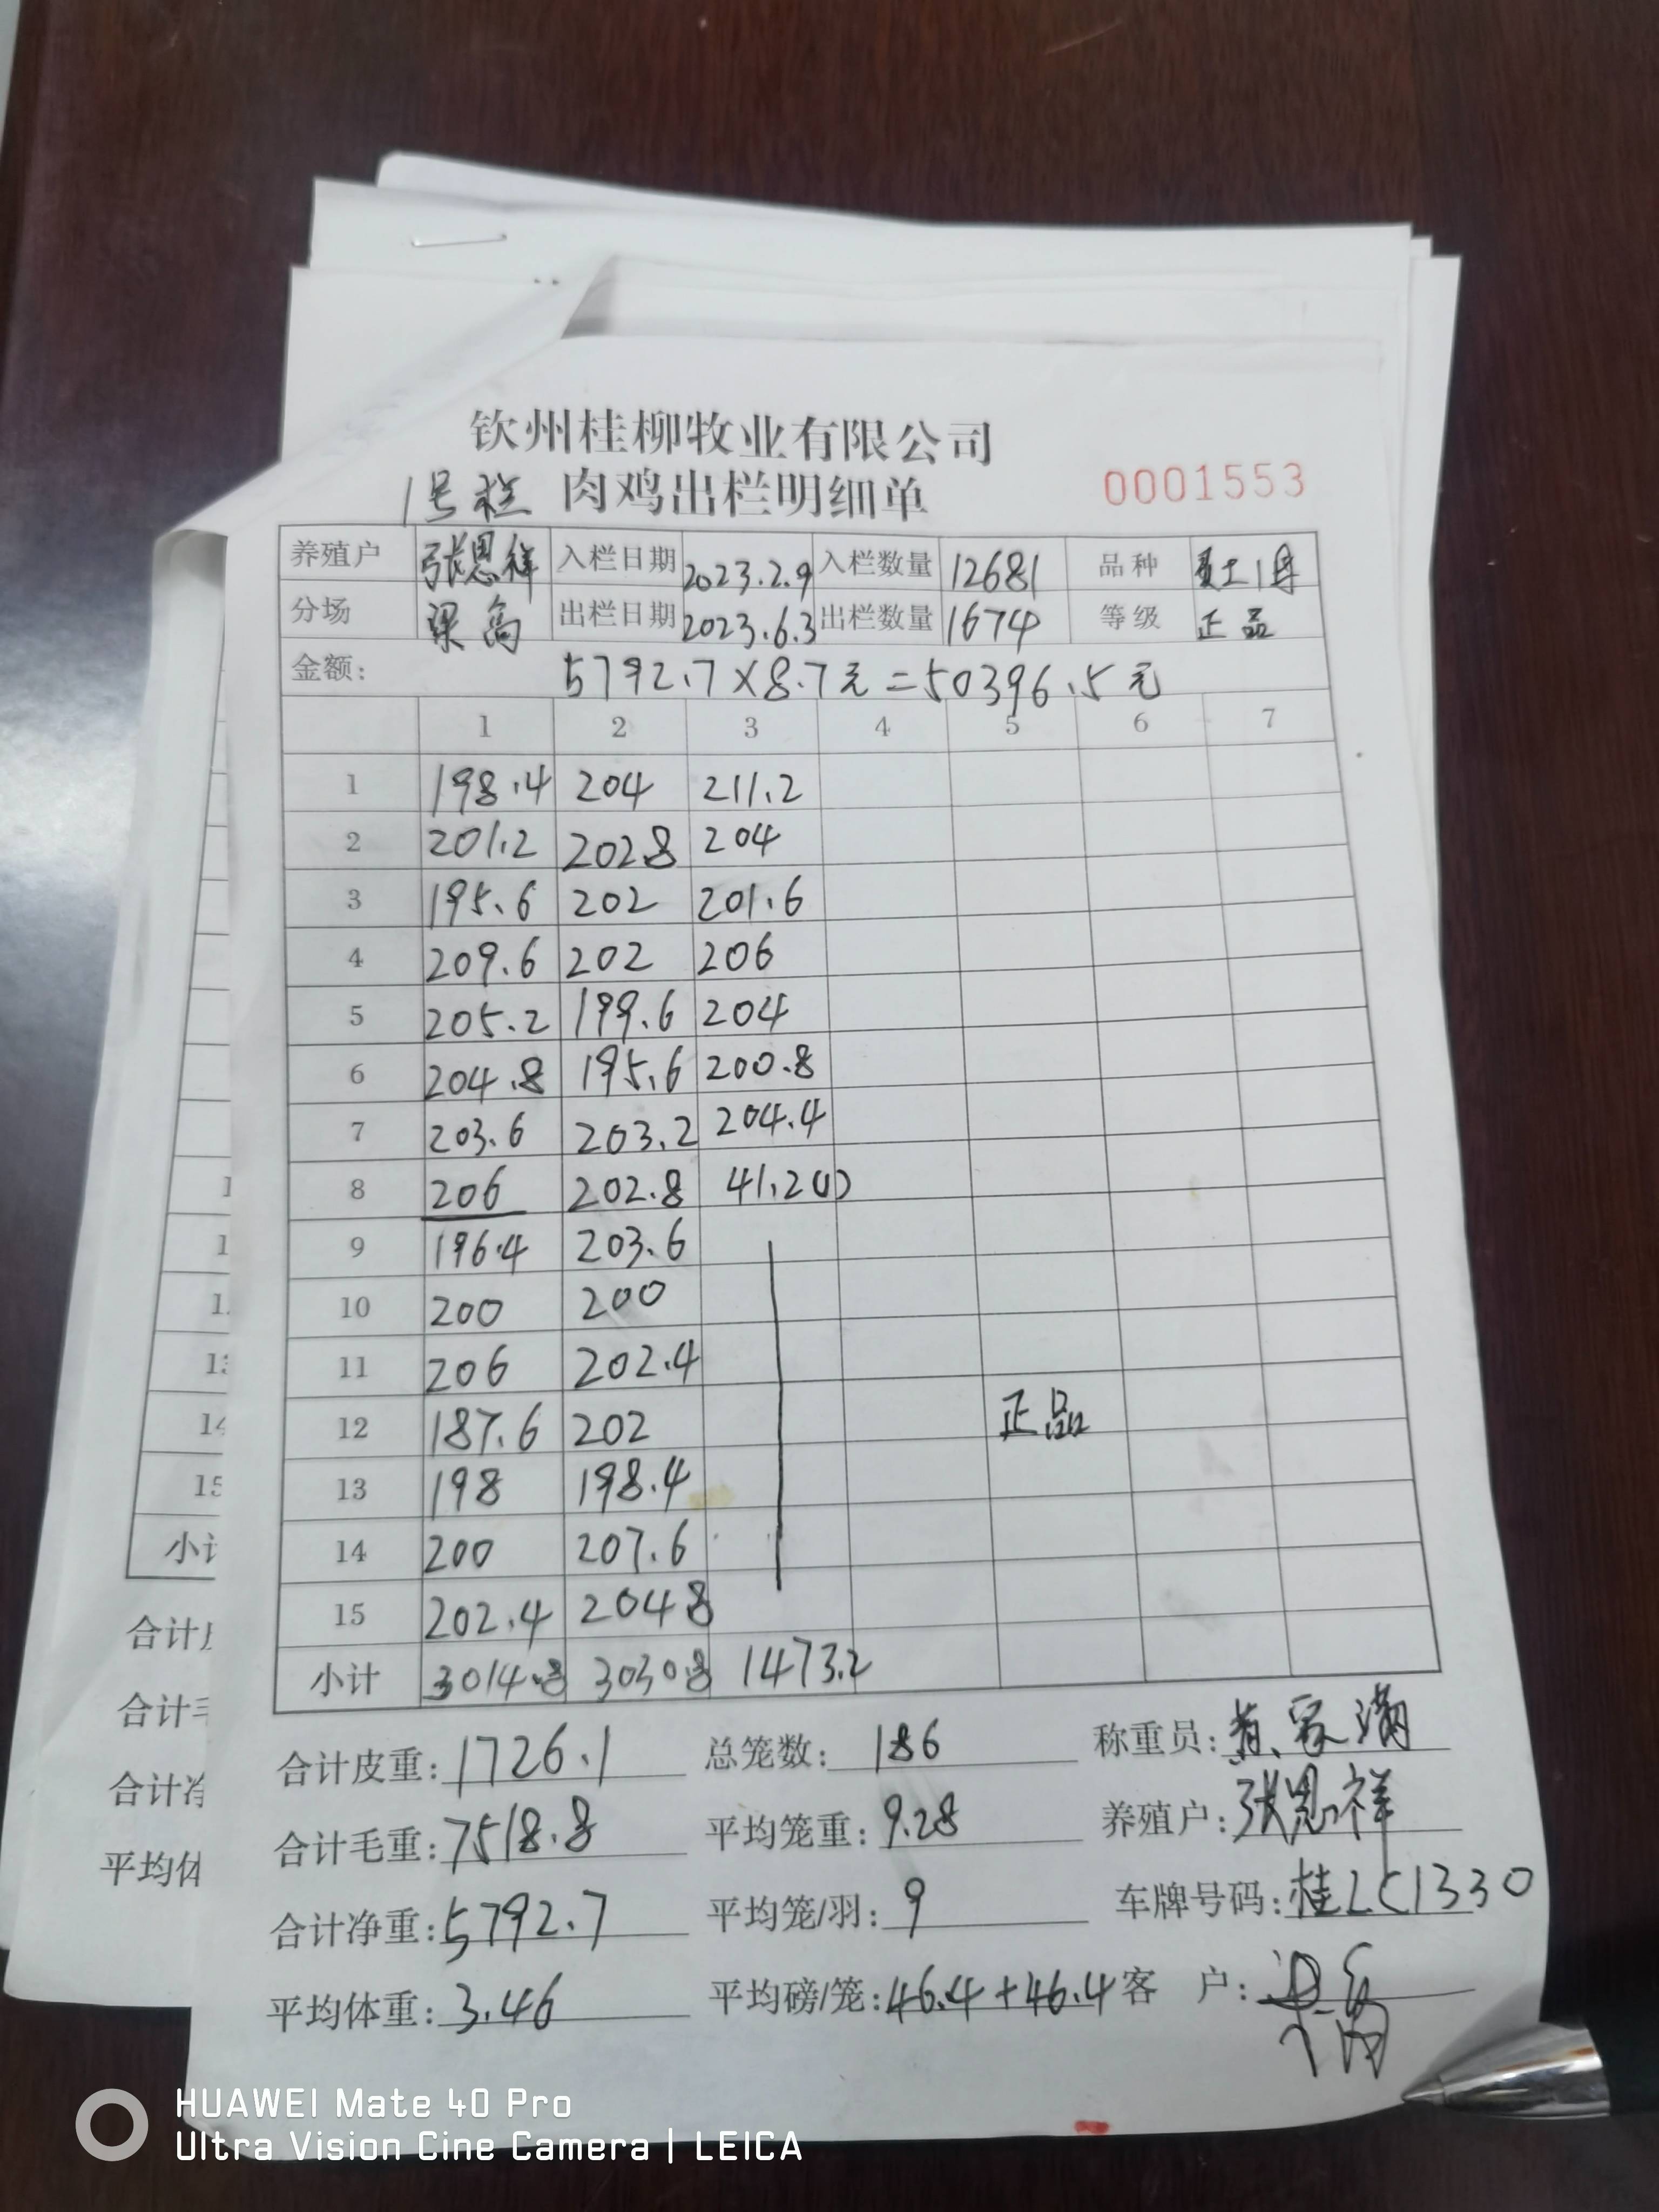 钦州桂柳牧业有限公司
1号栏 肉鸡出栏明细单 0001553
养殖户 张恩祥 入栏日期 2023.2.9 入栏数量 12681 品种
分场 梁高 出栏日期 2023.6.3 出栏数量 1674 等级 正品
金额: 5792.7×8.7元=50396.5元
1 2 3 4 5 6 7
1 198.4 204 211.2
2 201.2 202.8 204
3 195.6 202 201.6
4 209.6 202 206
5 205.2 199.6 204
6 204.8 195.6 200.8
7 203.6 203.2 204.4
8 206 202.8 41.2(1)
9 196.4 203.6
10 200 200
11 206 202.4
12 187.6 202 正品
13 198 198.4
14 200 207.6
15 202.4 204.8
小计 3014.8 3030.8 1473.2
合计皮重: 1726.1 总笼数: 186 称重员: 黄家满
合计毛重: 7518.8 平均笼重: 9.28 养殖户: 张恩祥
合计净重: 5792.7 平均笼/羽: 9 车牌号码: 桂LC1330
平均体重: 3.46 平均磅/笼: 46.4+46.4 客 户:
15
小计
合计
合计
合计净
平均体
HUAWEI Mate 40 Pro
Ultra Vision Cine Camera | LEICA